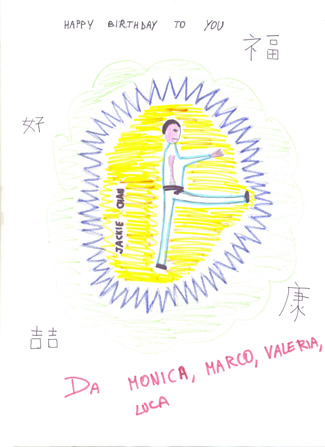 HAPPY BIRTHDAY TO YOU
福
好
JACKIE CHAN
康
喆
DA MONICA, MARCO, VALERIA,
LUCA